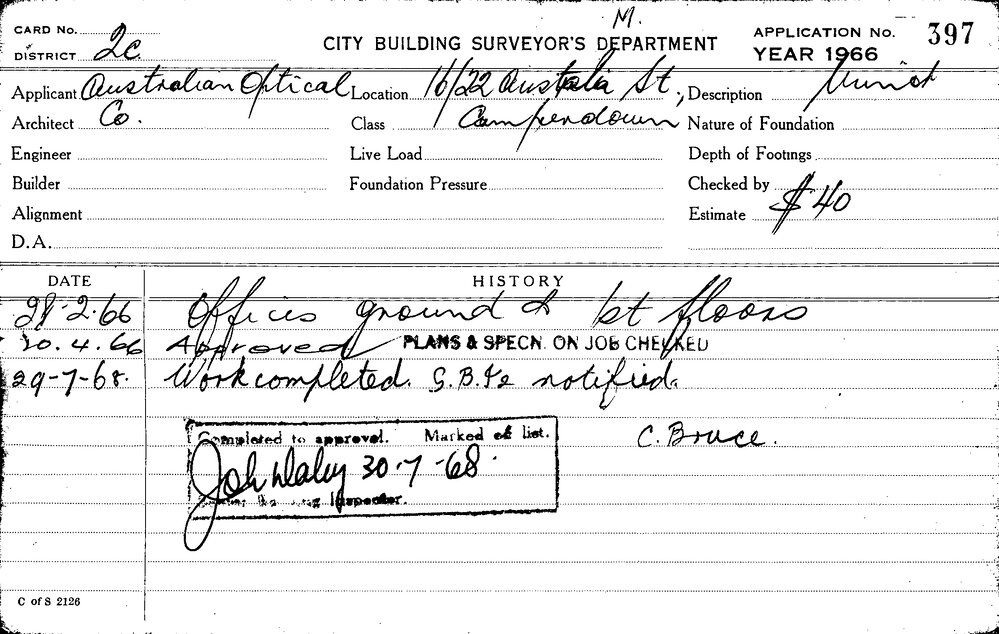 M.
CARD No. CITY BUILDING SURVEYOR'S DEPARTMENT APPLICATION No. 397
DISTRICT 2c YEAR 1966
Applicant Australian Optical Location 16/22 Australia St, Description Minor
Architect Co. Class Camperdown Nature of Foundation
Engineer Live Load Depth of Footings
Builder Foundation Pressure Checked by
Alignment Estimate $40
D.A.
DATE HISTORY
28-2-66 Offices ground & 1st floors
20.4.66 Approved PLANS & SPECN. ON JOB CHECKED
29-7-68. Work completed. notified.
Completed to approval. Marked off list. C. Bruce.
30-7-68.
Inspector.
C of S 2126